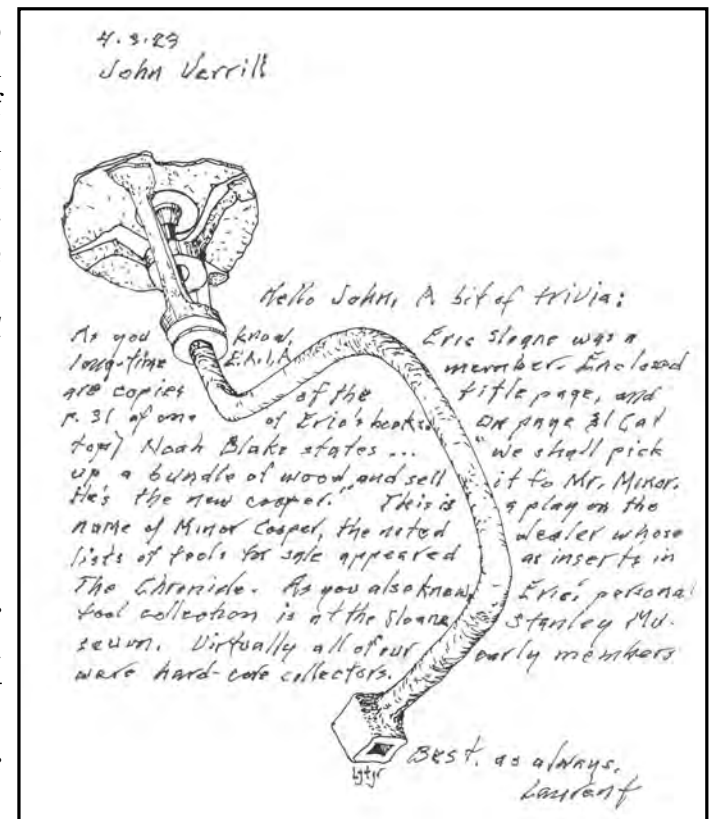 4.3.23
John Verrill
Hello John, A bit of trivia:
As you know, Eric Sloane was a
long-time E.A.I.A. member. Enclosed
are copies of the title page, and
p. 31 of one of Eric's books. On page 31 (at
top) Noah Blake states ... "we shall pick
up a bundle of wood and sell it to Mr. Minor.
He's the new cooper." This is a play on the
name of Minor Cooper, the noted dealer whose
lists of tools for sale appeared as inserts in
The Chronicle. As you also know, Eric's personal
tool collection is at the Sloane Stanley Mu-
seum. Virtually all of our early members
were hard-core collectors.
Best, as always,
Laurent